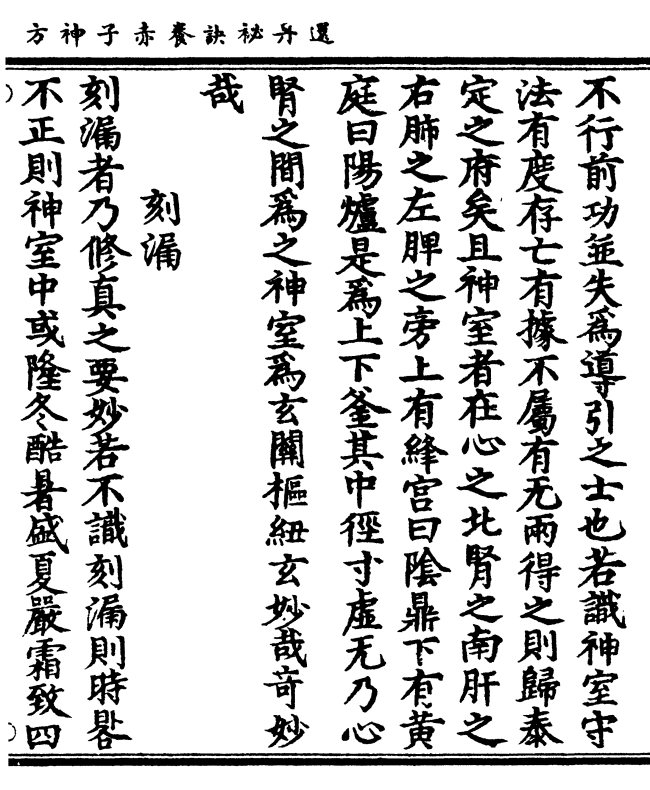 還丹祕訣養赤子神方
不行前功並失爲導引之士也若識神室守
法有度存亡有據不屬有无兩得之則歸泰
定之府矣且神室者在心之北腎之南肝之
右肺之左脾之旁上有絳宫曰陰鼎下有黄
庭曰陽爐是爲上下釜其中徑寸虚无乃心
腎之間爲之神室爲玄關樞紐玄妙哉奇妙
哉
刻漏
刻漏者乃修真之要妙若不識刻漏則時晷
不正則神室中或隆冬酷暑盛夏嚴霜致四